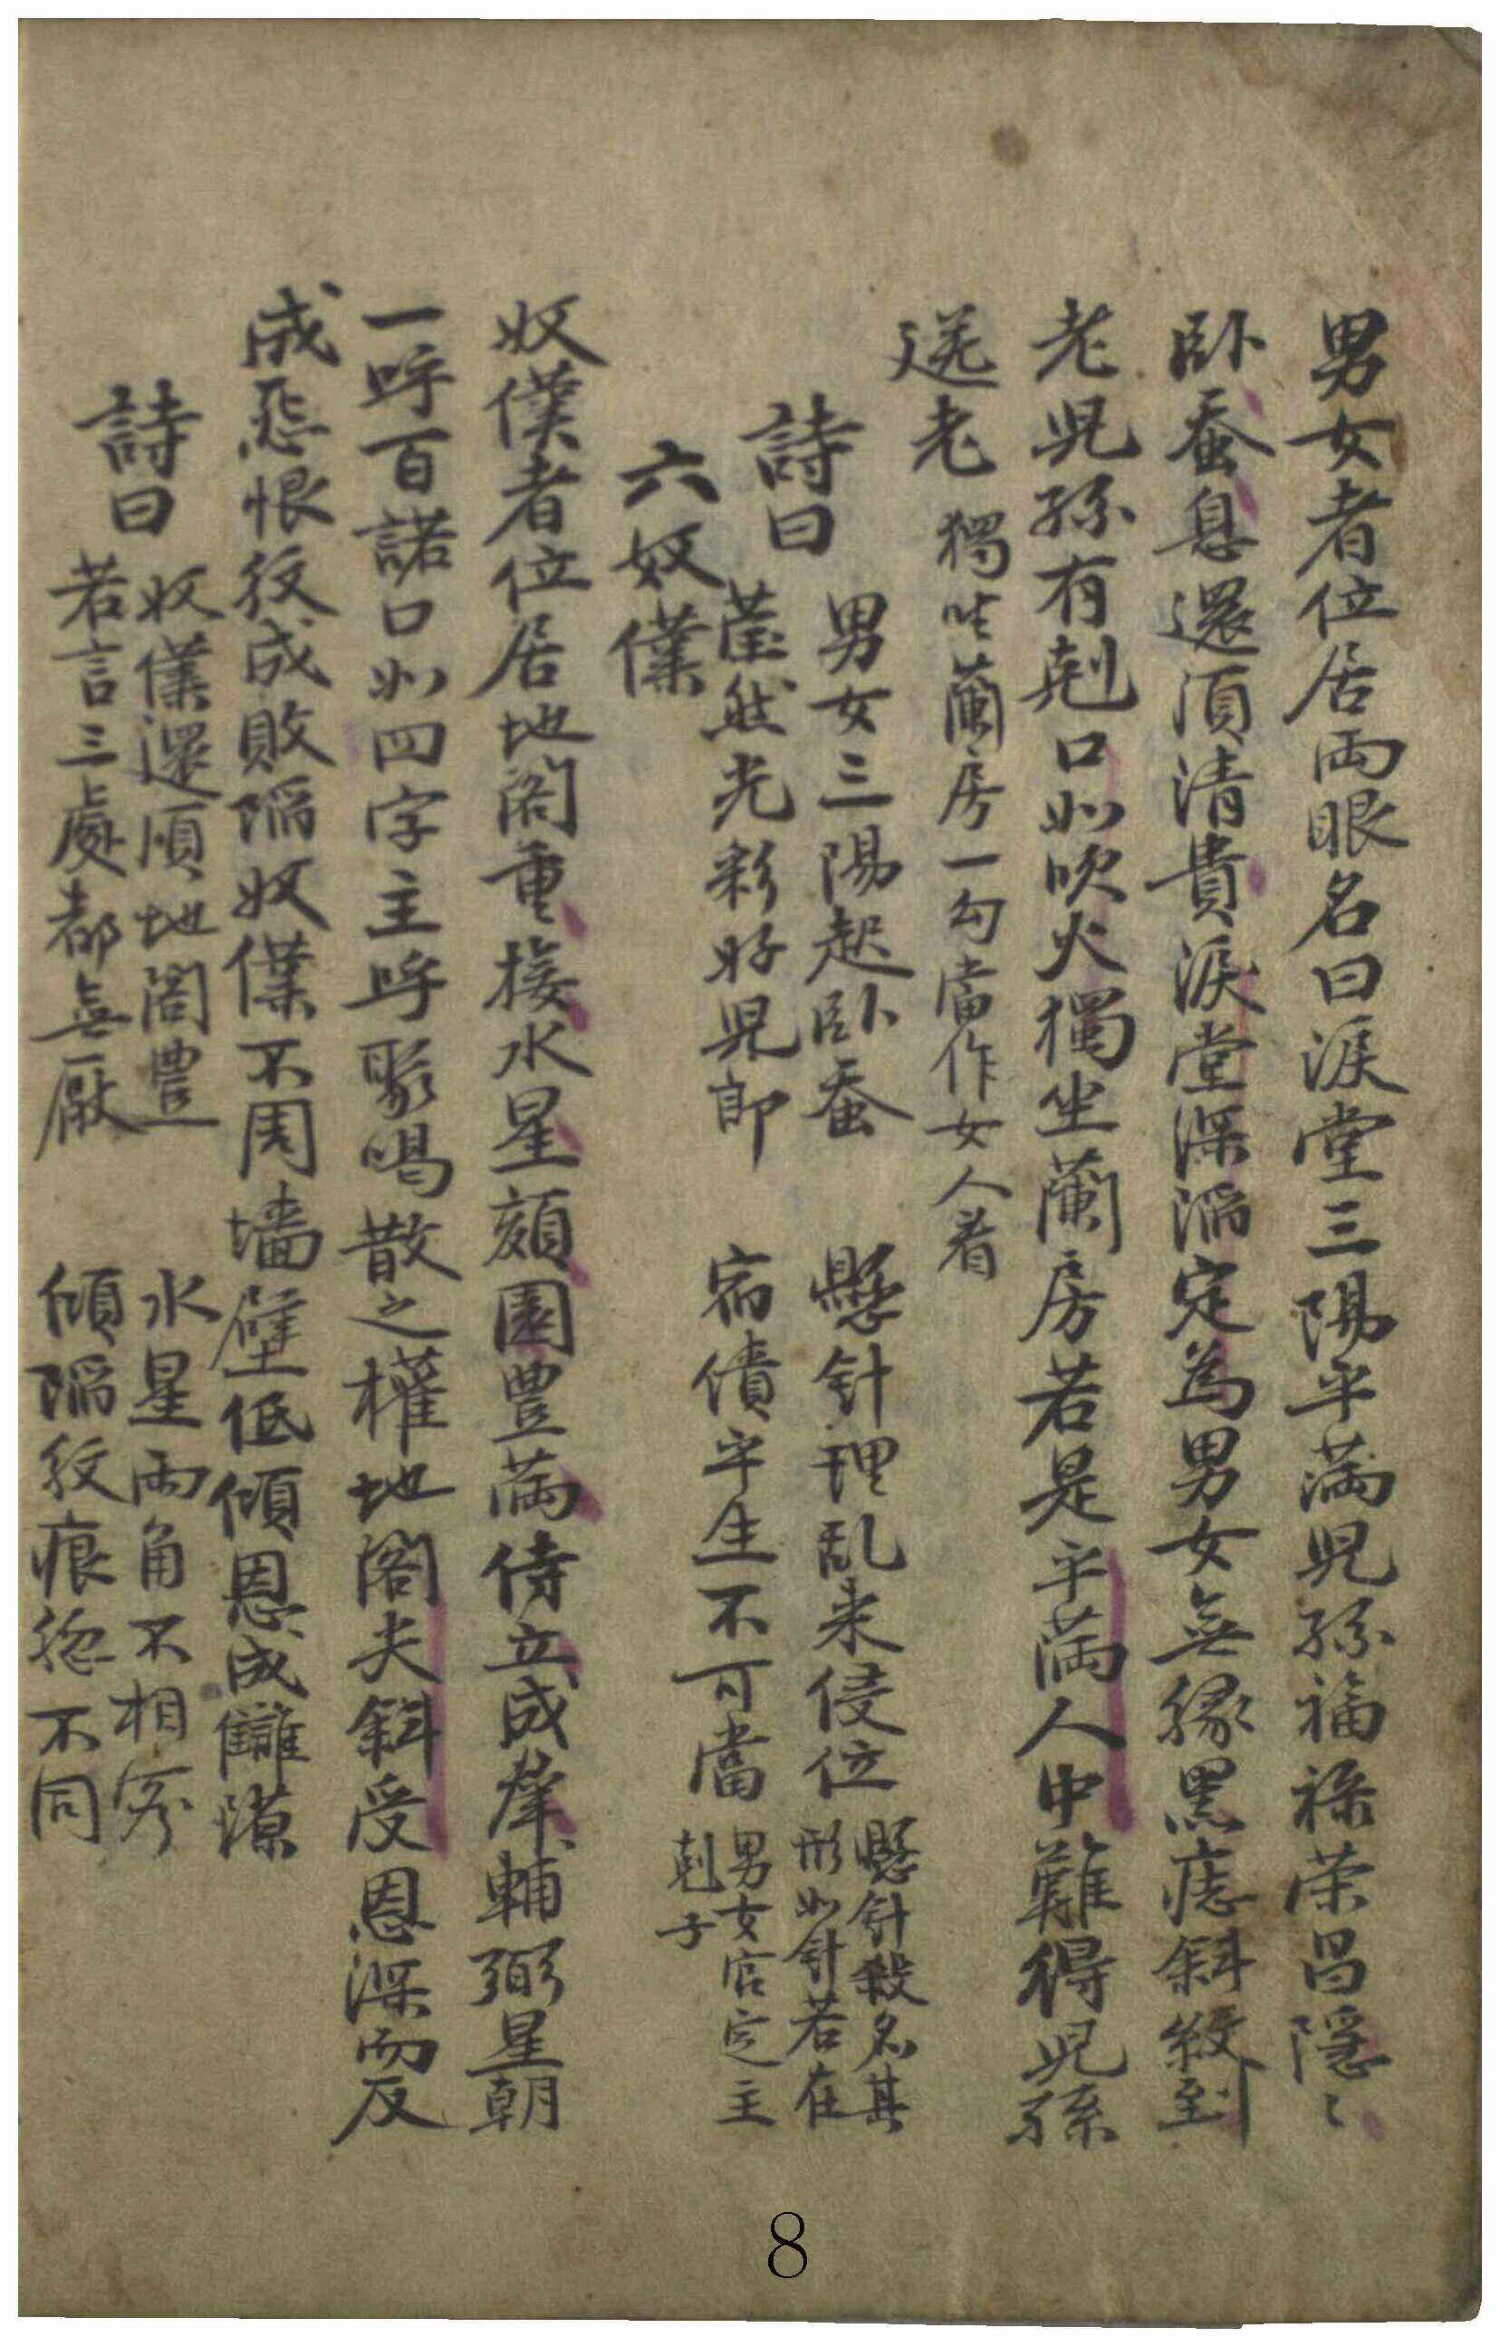 男女者位居両眼名曰淚堂三陽平滿児孫福祿荣昌隱〻
卧蚕息還須清貴淚堂深溺定為男女無緣黑痣斜紋到
老児孫有尅口如吹火獨坐蘭房若是平満人中難得児孫
送老 獨坐蘭房一勾當作女人看
詩曰
男女三陽起卧蚕
瑩然光彩好児郎
懸針理乱来侵位
宿債平生不可當
懸針殺名其
形如針若在
男女宮定主
尅子
六奴僕
奴僕者位居地阁重接水星頦圎豊満侍立成羣輔弼星朝
一呼百諾口如四字主呼聚喝散之權地阁尖斜受恩深而反
成恐恨紋成敗陷奴僕不周墙壁低傾恩成讎隙
詩曰
奴僕還須地阁豊
若言三處都無厭
水星両角不相容
傾陷紋痕總不同
8